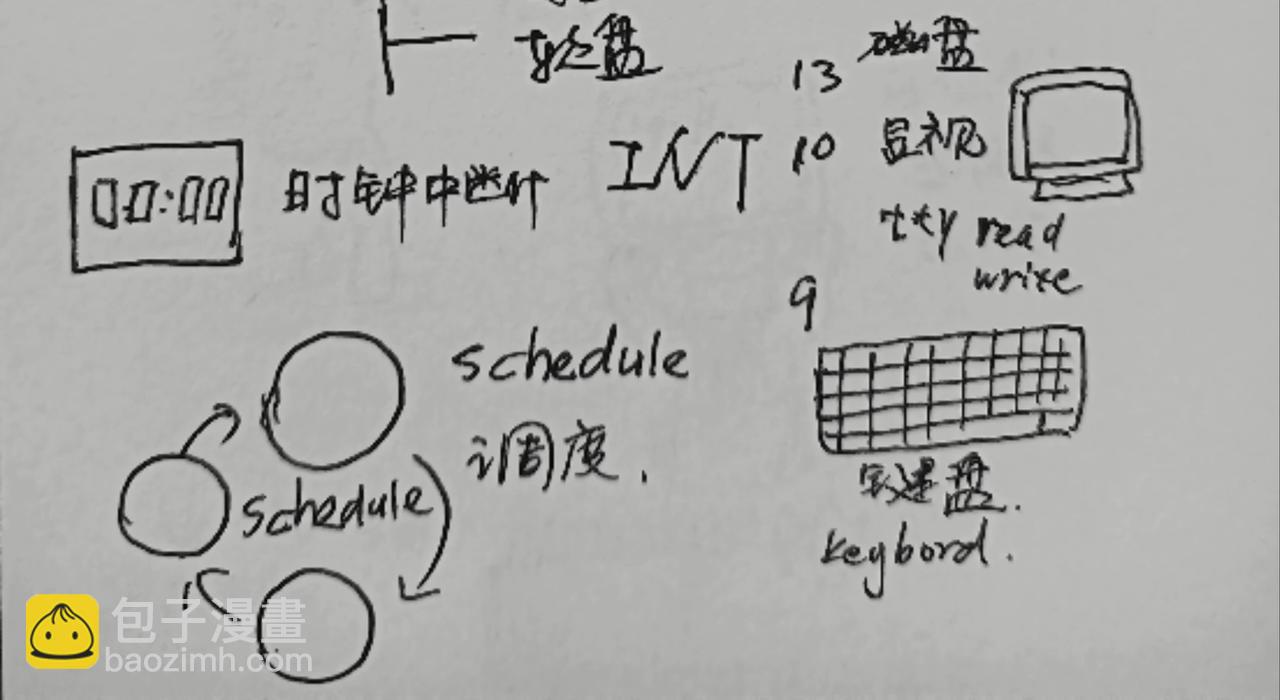 13 磁盘
00:00 时钟中断 INT 10 显视
tty read
write
9
schedule
调度.
schedule
键盘.
keybord.
包子漫畫
baozimh.com